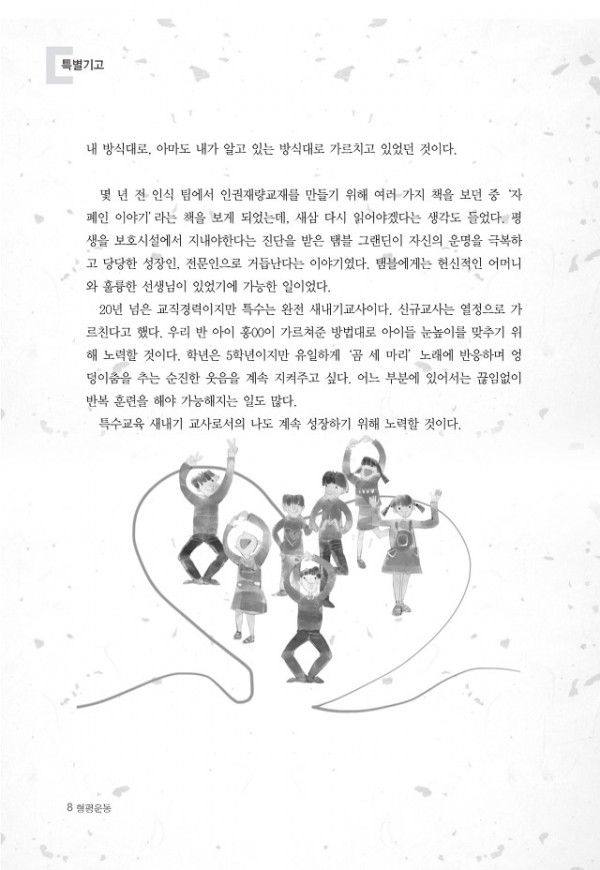 특별기고
내 방식대로, 아마도 내가 알고 있는 방식대로 가르치고 있었던 것이다.
몇 년 전 인식 팀에서 인권재량교재를 만들기 위해 여러 가지 책을 보던 중 ‘자
폐인 이야기’라는 책을 보게 되었는데, 새삼 다시 읽어야겠다는 생각도 들었다. 평
생을 보호시설에서 지내야한다는 진단을 받은 탬블 그랜딘이 자신의 운명을 극복하
고 당당한 성장인, 전문인으로 거듭난다는 이야기였다. 탬블에게는 헌신적인 어머니
와 훌륭한 선생님이 있었기에 가능한 일이었다.
20년 넘은 교직경력이지만 특수는 완전 새내기교사이다. 신규교사는 열정으로 가
르친다고 했다. 우리 반 아이 홍00이 가르쳐준 방법대로 아이들 눈높이를 맞추기 위
해 노력할 것이다. 학년은 5학년이지만 유일하게 ‘곰 세 마리’ 노래에 반응하며 엉
덩이춤을 추는 순진한 웃음을 계속 지켜주고 싶다. 어느 부분에 있어서는 끊임없이
반복 훈련을 해야 가능해지는 일도 많다.
특수교육 새내기 교사로서의 나도 계속 성장하기 위해 노력할 것이다.
8 형평운동